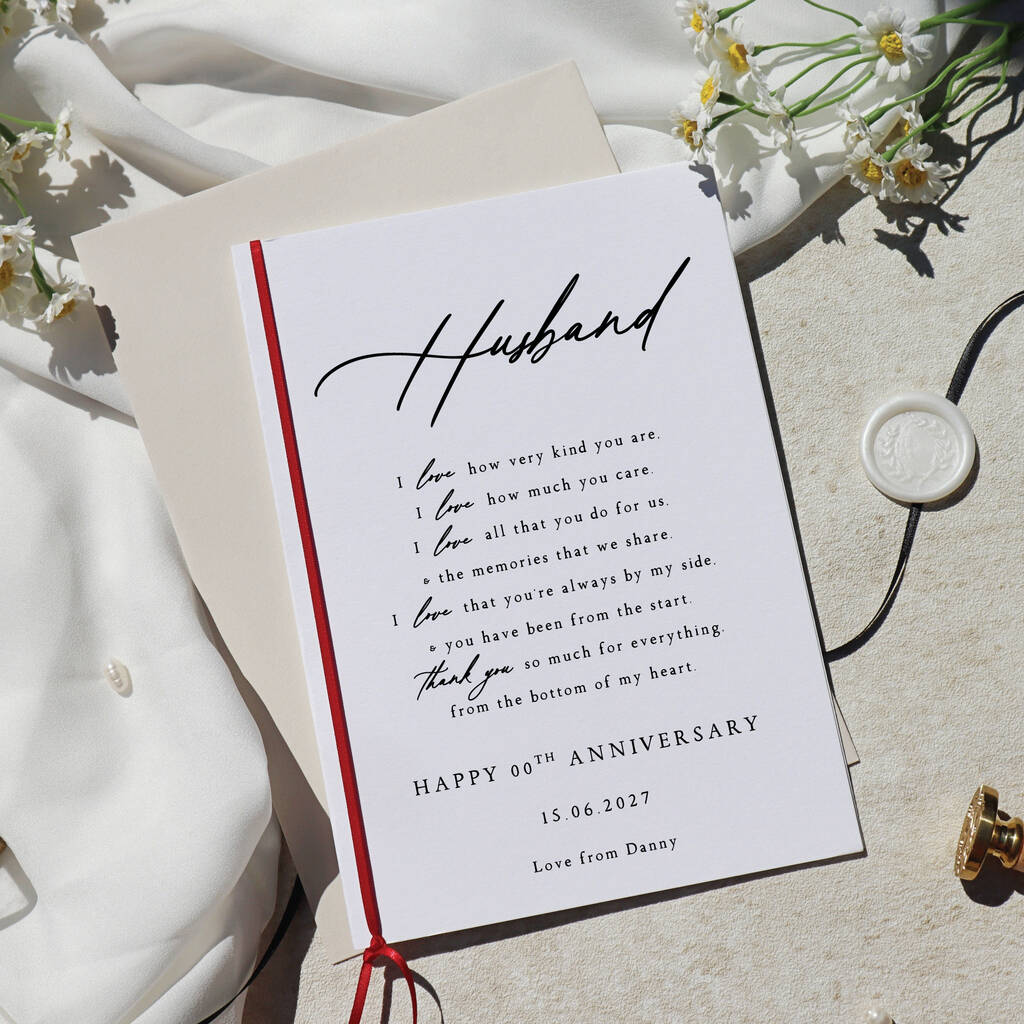 Husband
I love how very kind you are.
I love how much you care.
I love all that you do for us.
& the memories that we share.
I love that you're always by my side.
& you have been from the start.
thank you so much for everything.
from the bottom of my heart.
HAPPY 00TH ANNIVERSARY
15.06.2027
Love from Danny